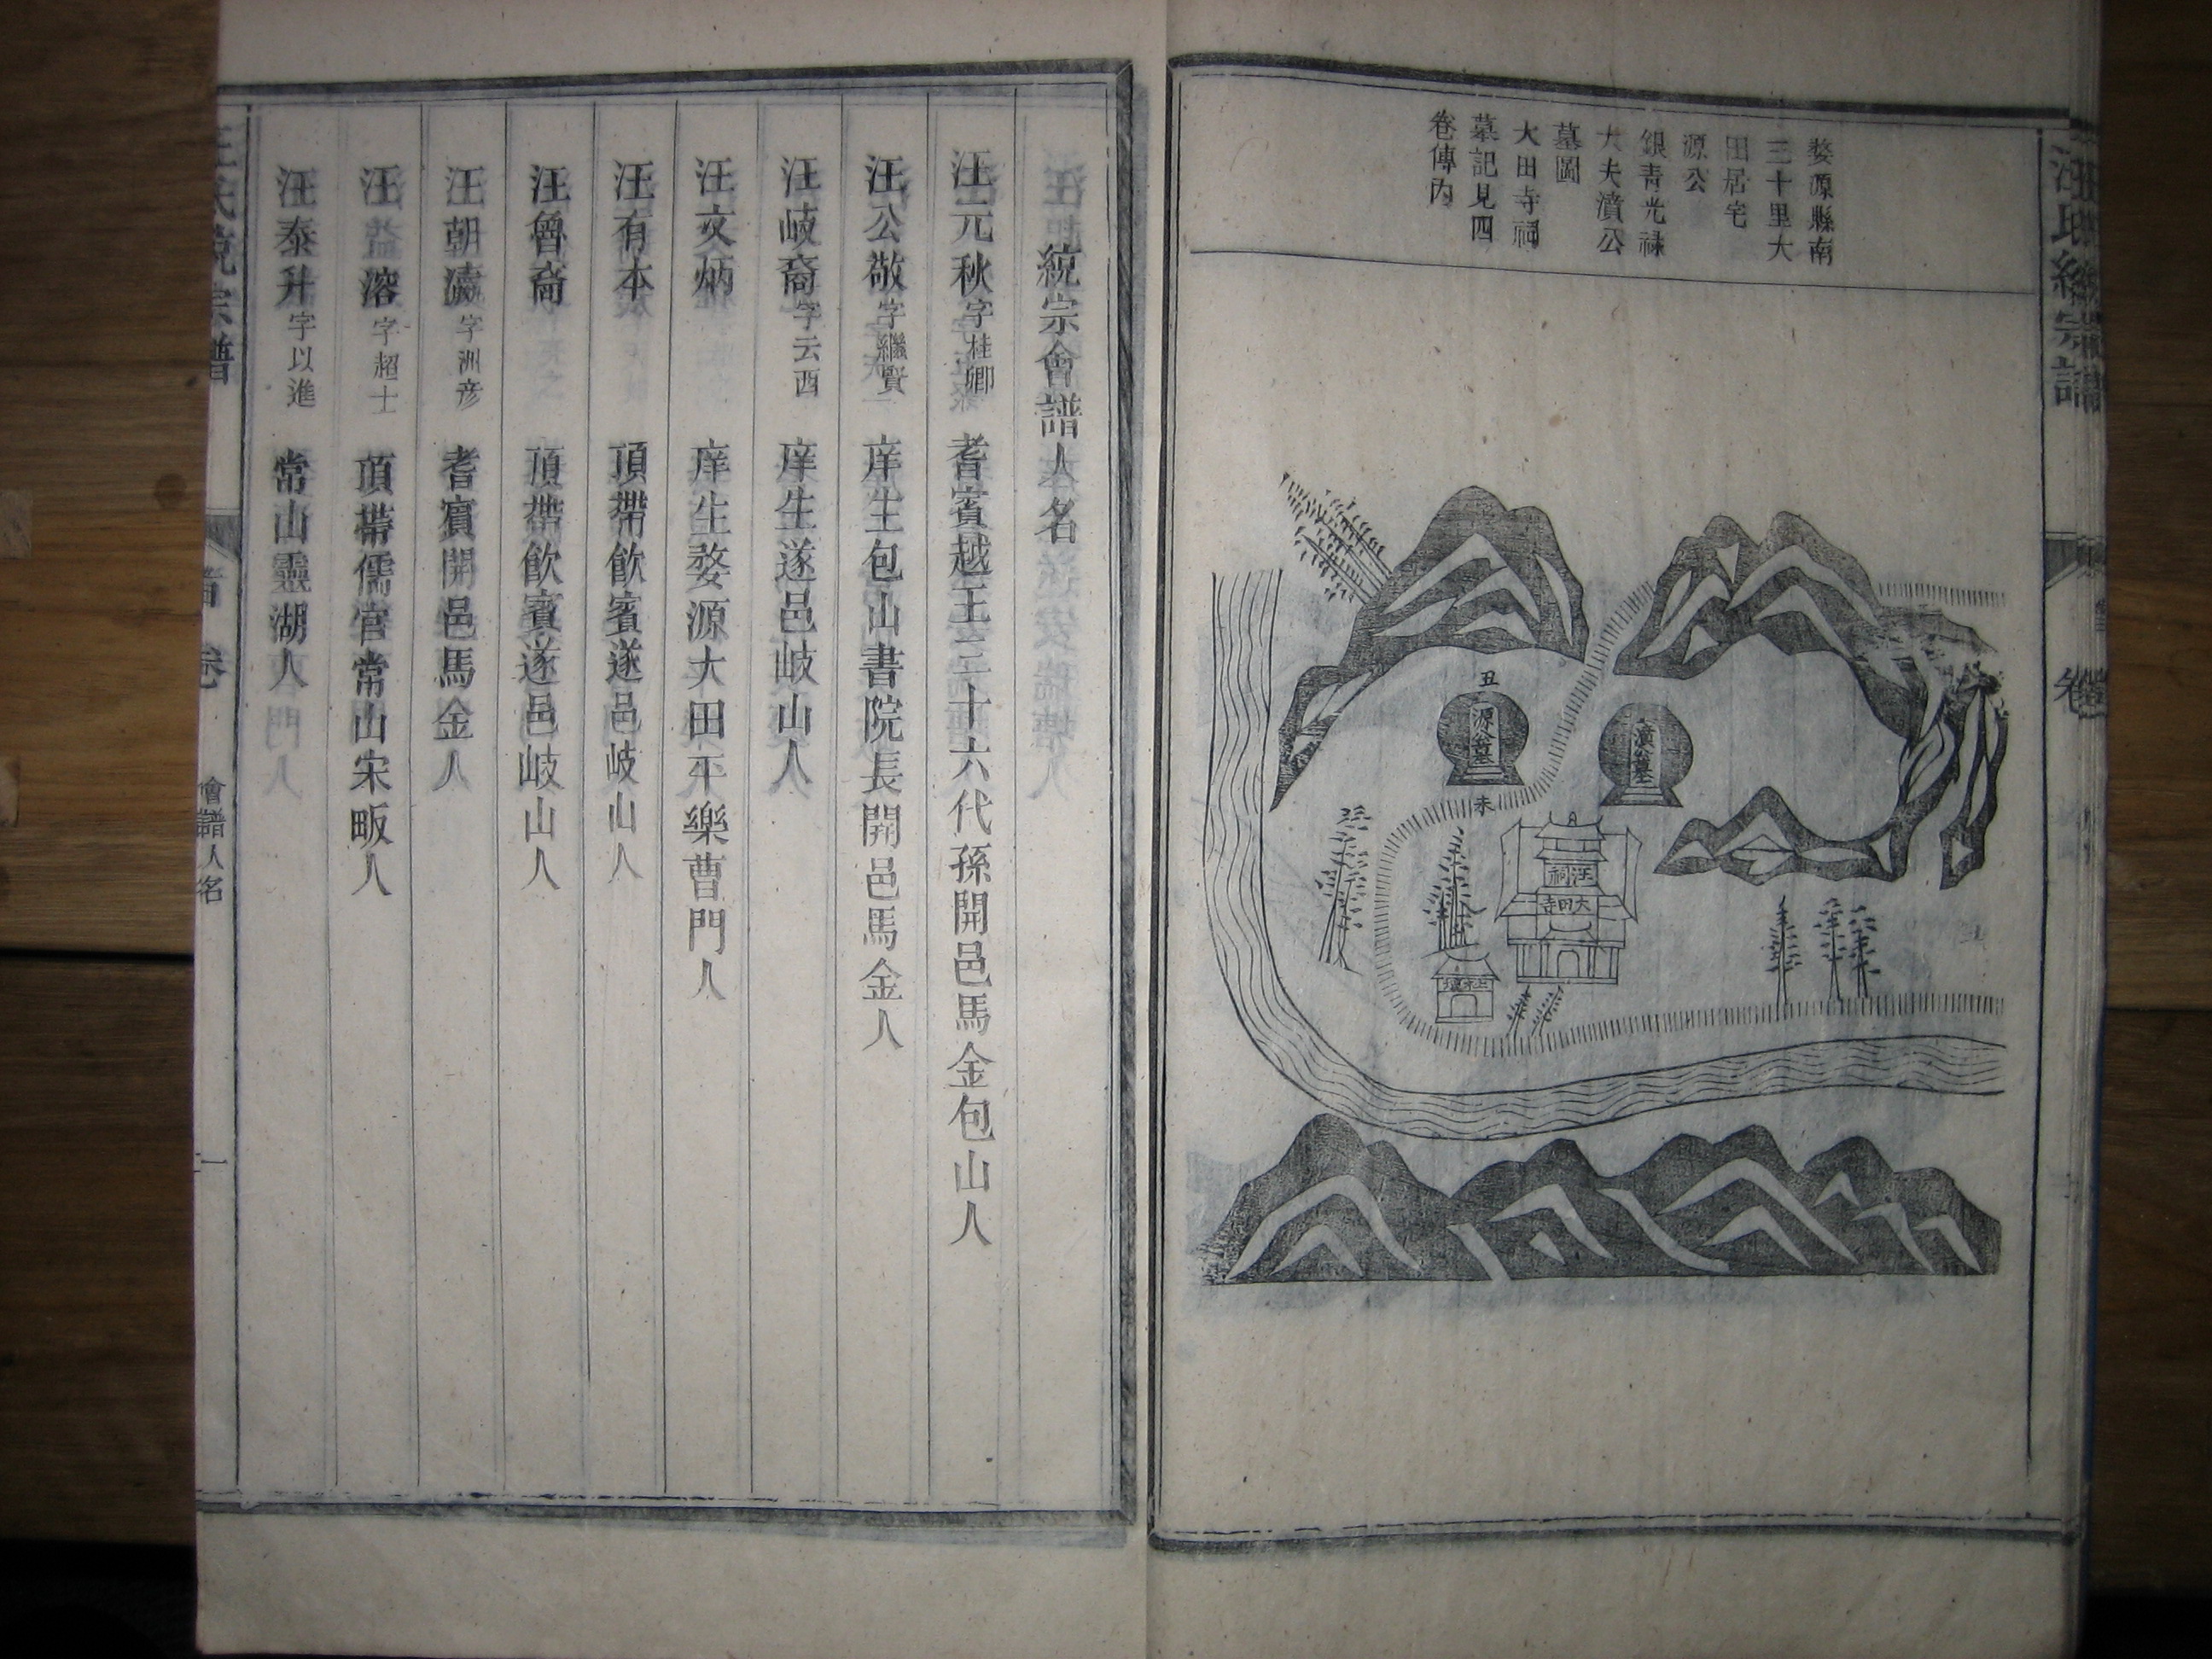 汪氏統宗譜
婺源縣南
三十里大
田居宅
源公
銀青光祿
大夫濆公
墓圖
大田寺祠
墓記見四
卷傳內
濆公墓
汪祠
大田寺
丑
源公墓
未
統宗會譜人名
汪元秋字桂卿 耆賓越王三十六代孫開邑馬金包山人
汪公敬字繼賢 庠生包山書院長開邑馬金人
汪岐裔字云西 庠生遂邑岐山人
汪文炳 庠生婺源大田平樂曹門人
汪有本 頂帶飲賓遂邑岐山人
汪魯裔 頂帶飲賓遂邑岐山人
汪朝瀛字洲彥 耆賓開邑馬金人
汪溶字超士 頂帶儒官常山宋畈人
汪泰升字以進 常山靈湖人
汪氏統宗譜 會譜人名 一